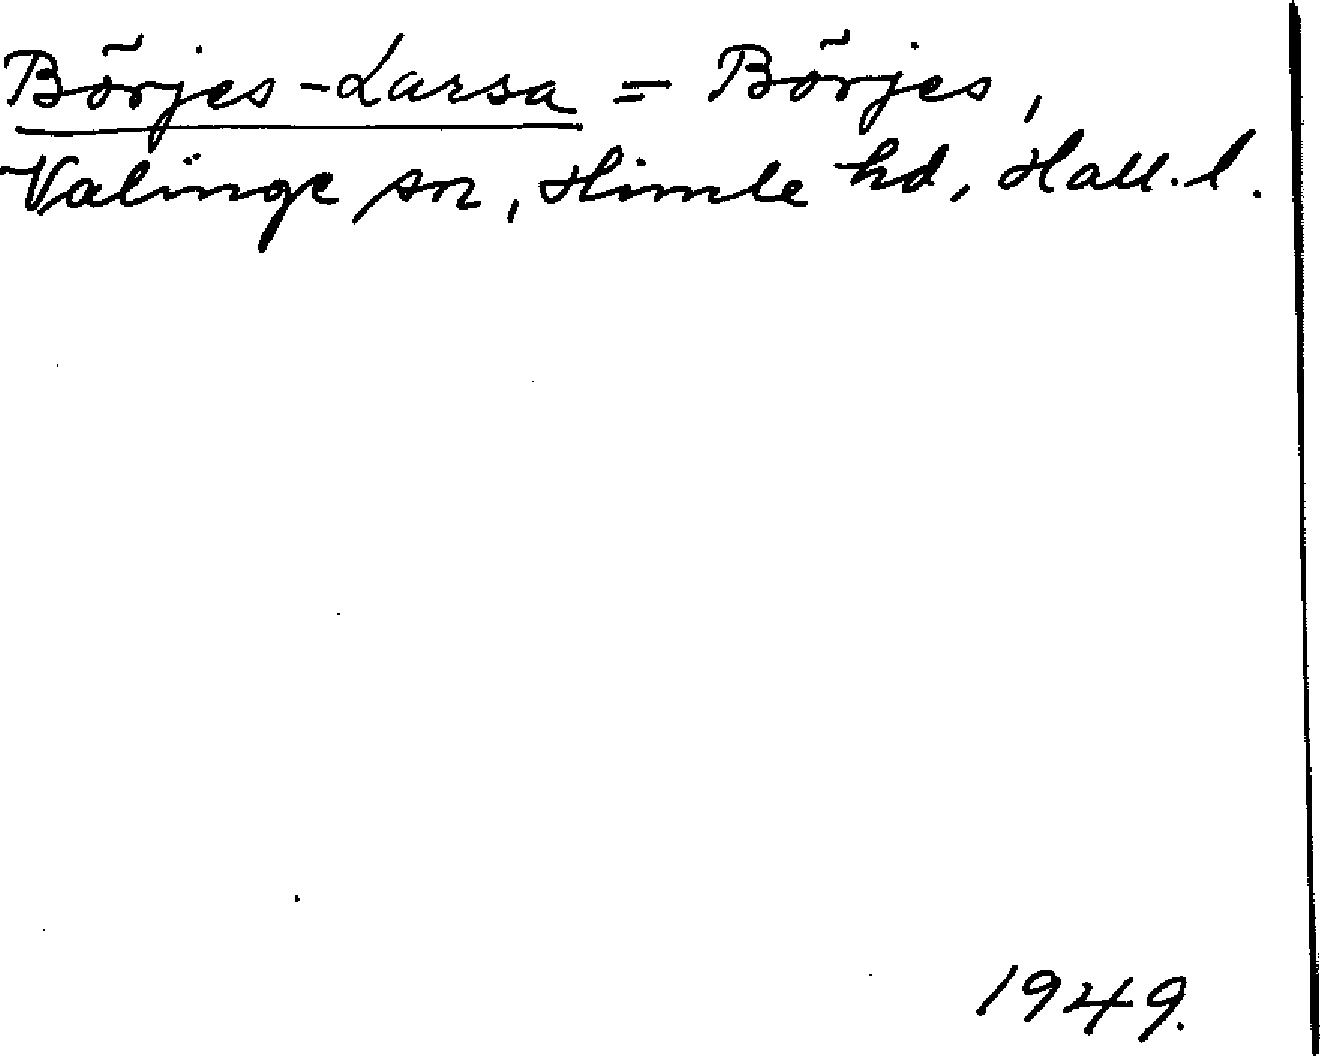 Börjes-Larsa = Börjes,
Valinge sn, Himle hd, Hall. l.
1949.